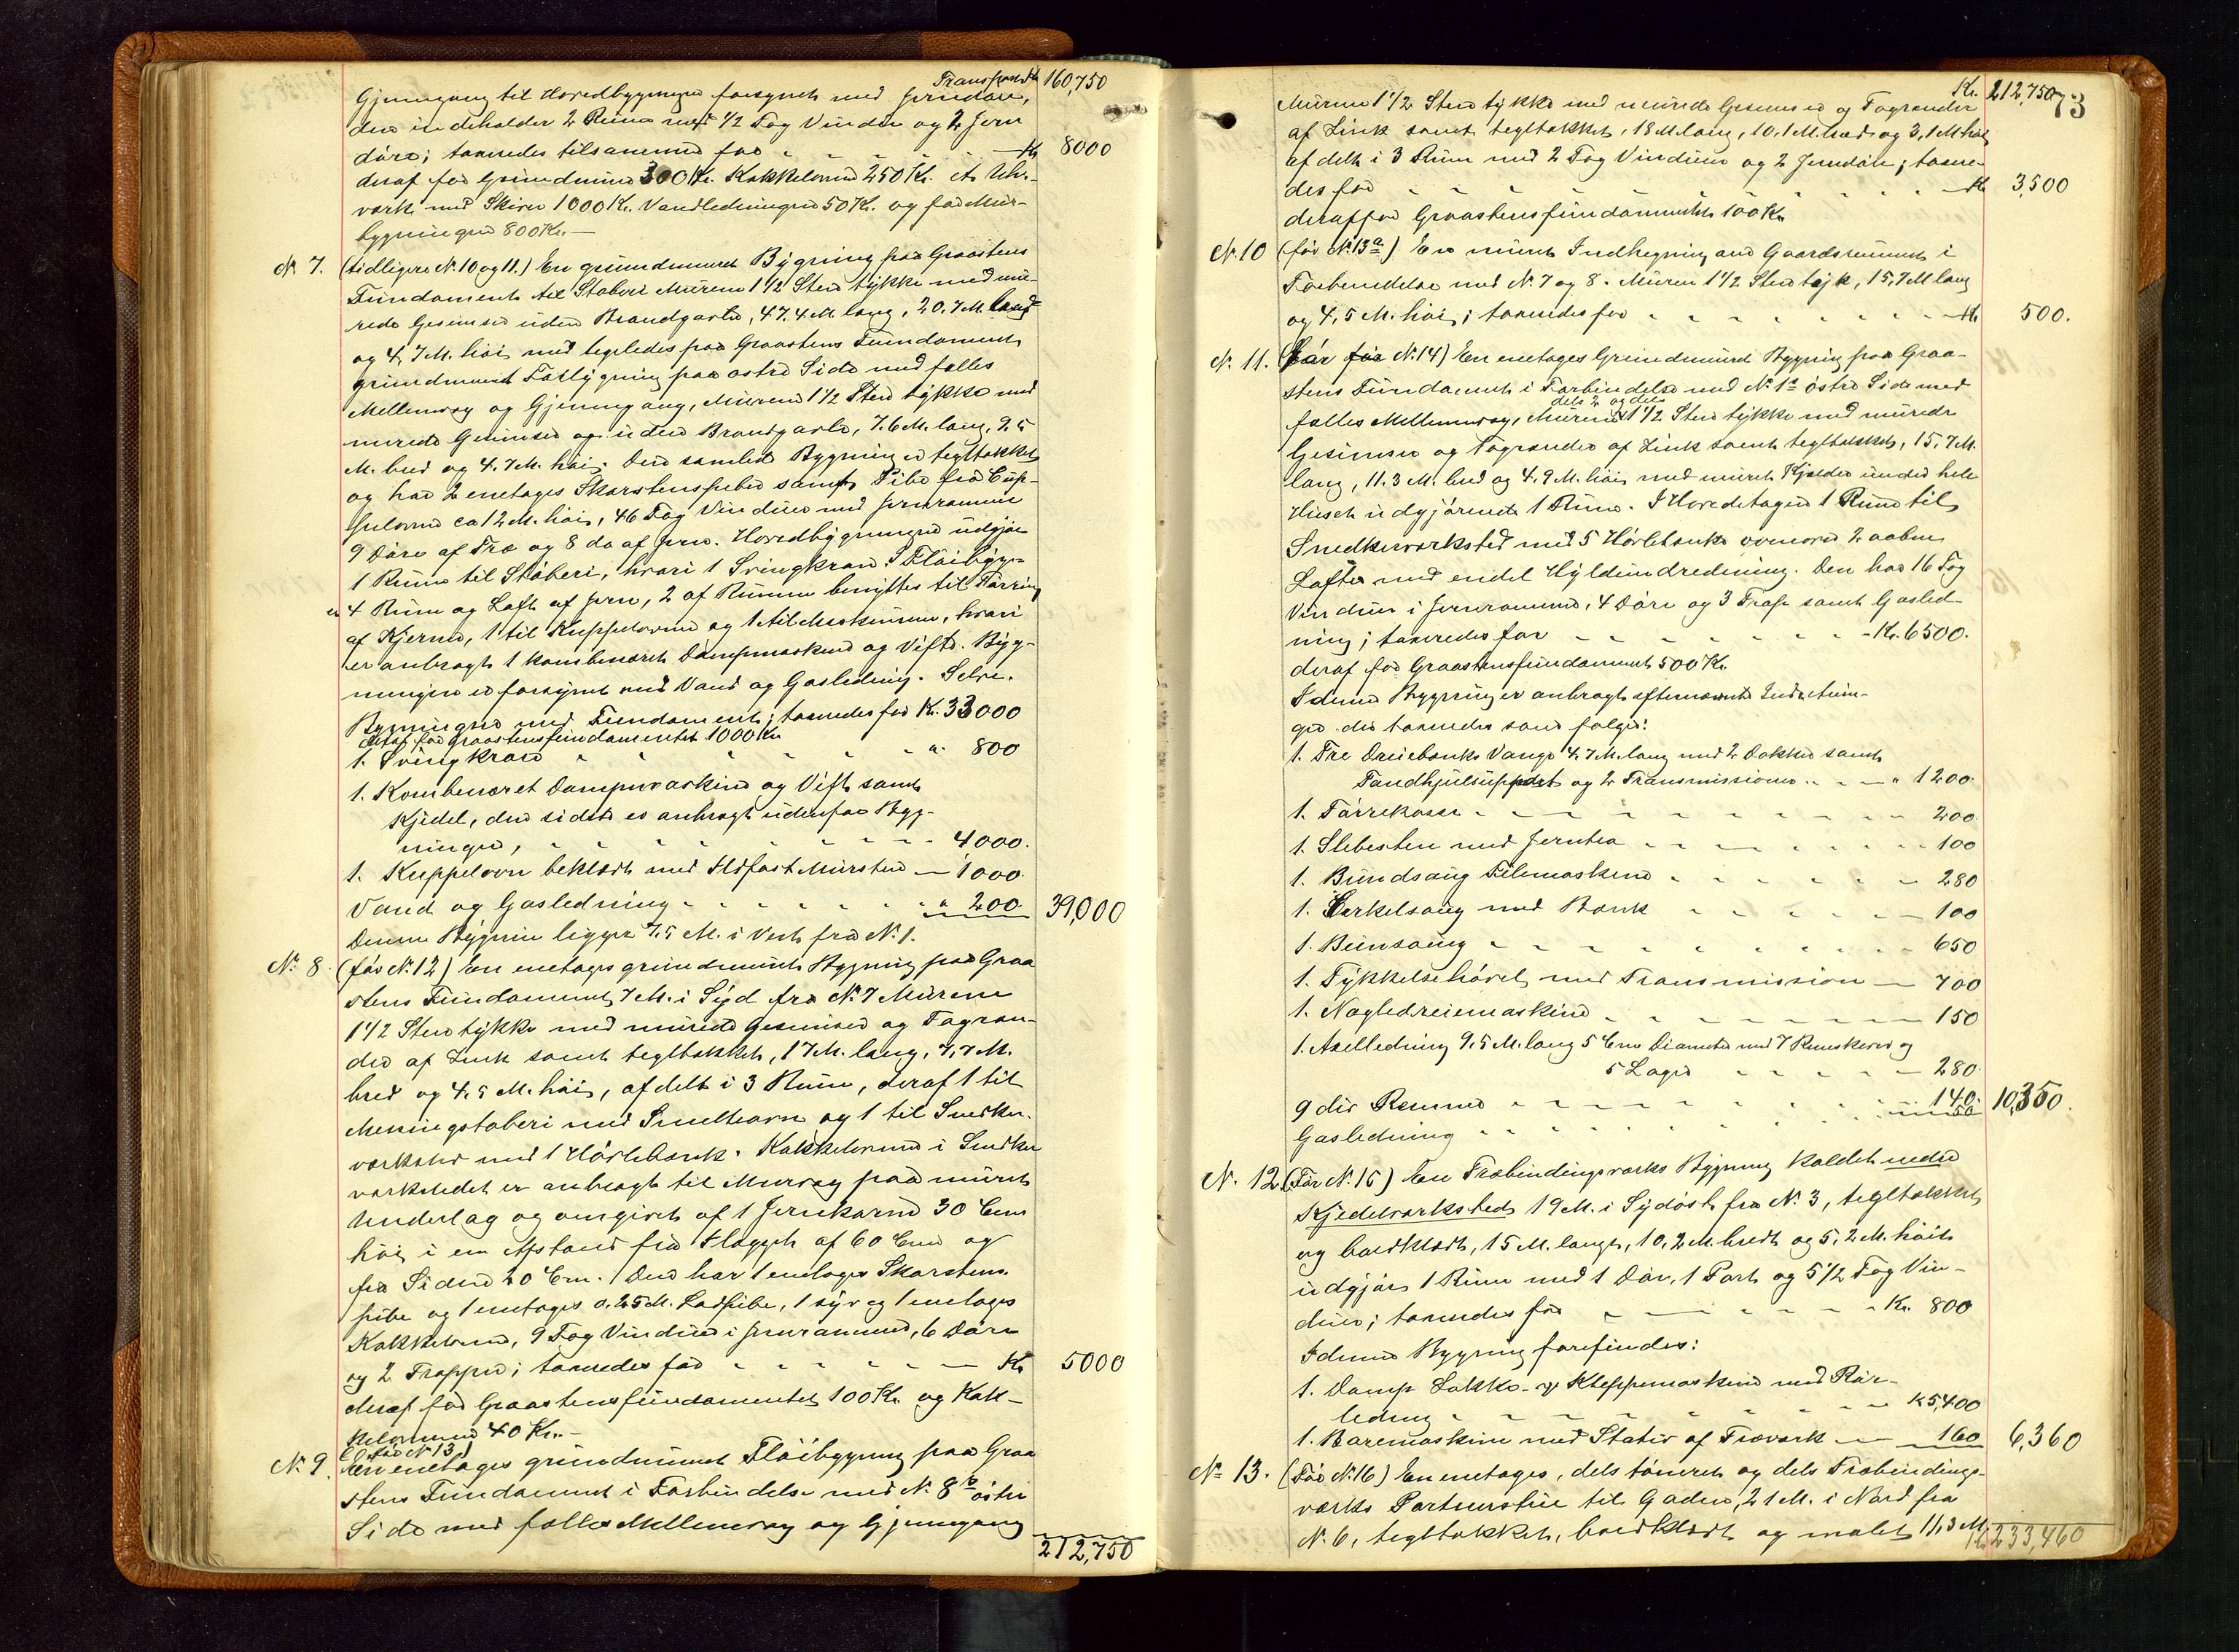 Transport Kr 160,750
Gjennegang til Hovedbygningen forsynet med Jerndøre,
den indeholder 2 Rum med 1/2 Fag Vinduer og 2 Jern
døre; taxeredes tilsammen for - - - - - Kr 8000
deraf for Grundmuren 300 Kr. Kakkelovne 250 Kr. et Uhr-
værk med Skiver 1000 Kr. Vandledningen 50 Kr. og for Mur-
bygningen 800 Kr. —
N. 7. (tidligere N. 10 og 11.) En grundmuret Bygning paa Graastens
Fundament til Støberi Murene 1 1/2 Sten tykke med mu-
rede Gesimser uden Brandgavle, 47.4 M. lang, 20,7 M. bred
og 4,7 M. høi med ligeledes paa Graastens Fundament
grundmuret Tilbygning paa østre Side med fælles
Mellemvæg og Gjennegang, Murene 1 1/2 Sten tykke med
murede Gesimser og uden Brandgavle, 7.6 M. lang, 9.5
M. bred og 4.7 M. høi. Den samlede Bygning er tegltækket
og har 2 enetages Skorstenspiber samt Pibe fra Cup-
pelovne ca 12 M. høi, 46 Fag Vinduer med Jernrammer
9 Døre af Træ og 8 do af Jern. Hovedbygningen udgjør
1 Rum til Støberi, hvori 1 Svingkran. I Fløibygn.
er 4 Rum og Loft af Jern, 2 af Rummene benyttes til Tørring
af Kjerner, 1 til Kuppelovne og 1 til Maskinrum, hvori
er anbragt 1 kombineret Dampmaskine og Vifte. Byg-
ningen er forsynet med Vand og Gasledning. Selve
Bygningen med Fundament; taxeredes for Kr. 33000
deraf for Graastensfundamentet 1000 Kr
1. Svingkran - - - - - " 800
1. Kombineret Dampmaskine og Vifte samt
Kjedel, den sidste er anbragt udenfor Byg-
ningen, - - - - - 4000.
1. Kuppelovn beklædt med Ildfast Mursten — 1000.
Vand og Gasledning - - - - - " 200 39,000
Denne Bygning ligger 7,5 M. i Vest fra N. 1.
N. 8. (før N. 12) En enetages grundmuret Bygning paa Graa
stens Fundament, 7 M. i Syd fra N. 7 Murene
1 1/2 Sten tykke med murede Gesimser og Tagren-
der af Zink samt tegltækket, 17 M. lang, 7,7 M.
bred og 4,5 M. høi, afdelt i 3 Rum, deraf 1 til
Messingstøberi med Smelteovn og 1 til Snedker-
værksted med 1 Høvlebænk. Kakkelovnen i Snedker
værkstedet er anbragt til Murvæg paa muret
Underlag og omgivet af 1 Jernkarm 30 Cm
høi i en Afstand fra Ilægget af 60 Cm og
fra Siderne 20 Cm. Den har 1 enetages Skorstens
pibe og 1 enetages 0,25 M. Lodpibe, 1 syv og 1 enetages
Kakkelovne, 9 Fag Vinduer i Jernrammer, 6 Døre
og 2 Trapper; taxeredes for - - - - - Kr 5000
deraf for Graastensfundamentet 100 Kr. og Kak-
kelovnene 40 Kr. —
(før N. 13)
N. 9. En enetages grundmuret Fløibygning paa Graa
stens Fundament i Forbindelse med N. 8 østre
Side med fælles Mellemvæg og Gjennegang
212,750
Kr. 212,750 73
Murene 1 1/2 Sten tykke med murede Gesimser og Tagrender
af Zink samt tegltækket, 18 M. lang, 10,1 M. bred og 3,1 M. høi
afdelt i 3 Rum med 2 Fag Vinduer og 2 Jerndøre; taxere-
des for - - - - - Kr 3,500
deraf for Graastensfundamentet 100 Kr.
N. 10 (før N. 13a) En muret Indhegning om Gaardsrummet i
Forbindelse med N. 7 og 8. Muren 1 1/2 Sten tyk, 15,7 M lang
og 4,5 M. høi; taxeredes for - - - - - Kr. 500.
N. 11. (før N. 14) En enetages Grundmuret Bygning paa Graa-
stens Fundament i Forbindelse med N. 1a østre Side med
dels 2 og dels
fælles Mellemvæg, Murene 1 1/2 Sten tykke med murede
Gesimser og Tagrender af Zink samt tegltækket, 15,7 M.
lang, 11.3 M. bred og 4,9 M. høi med muret Kjelder under hele
Huset udgjørende 1 Rum. I Hovedetagen 1 Rum til
Snedkerværksted med 5 Høvlebænke ovenover 2 aabne
Lofte med endel Hyldeindredning. Den har 16 Fag
Vinduer i Jernrammer, 4 Døre og 3 Trapper samt Gasled-
ning; taxeredes for - - - - - Kr. 6500.
deraf for Graastensfundament 500 Kr.
I denne Bygning er anbragt efternævnte Indretnin-
ger der taxeredes som følger:
1. Træ Dreiebænks Vange 4,7 M. lang med 2 Dokker samt
Tandhjulsupport og 2 Transmissioner - - " 1200.
1. Tørrekasse - - - - - 200.
1. Slibesten med Jerntra - - - - - 100
1. Bundsaug Filemaskine - - - - - 280
1. Cirkelsaug med Bænk - - - - - 100
1. Baandsaug - - - - - 650
1. Tykkelsehøvel med Transmission — 700
1. Nagledreiemaskine - - - - - 150
1. Axelledning 9,5 M. lang 5 Cm Diameter med 7 Remskiver og
5 Lager - - - - - 280.
9 div Remmer - - - - - 140.
Gasledning - - - - - 50 10,350.
N. 12. (Før N. 15) En Træbindingsværks Bygning kaldet nedre
Kjedelværksted 19 M. i Sydøst fra N. 3, tegltækket
og bordklædt, 15 M. langt, 10,2 M. bredt og 5,2 M. høit
udgjør 1 Rum med 1 Dør, 1 Port og 5 1/2 Fag Vin-
duer; taxeredes for - - - - - Kr. 800
I denne Bygning forefindes:
1. Damp Lokke- og Klippemaskine med Rør-
ledning - - - - - Kr 5,400
1. Boremaskine med Stativ af Træværk — 160 6,360
N. 13. (Før N. 16) En enetages, dels tømret og dels Træbindings-
værks Portnerstue til Gaden, 21 M. i Nord fra
N. 6, tegltækket, bordklædt og malet 11,3 M.
Kr 233,460